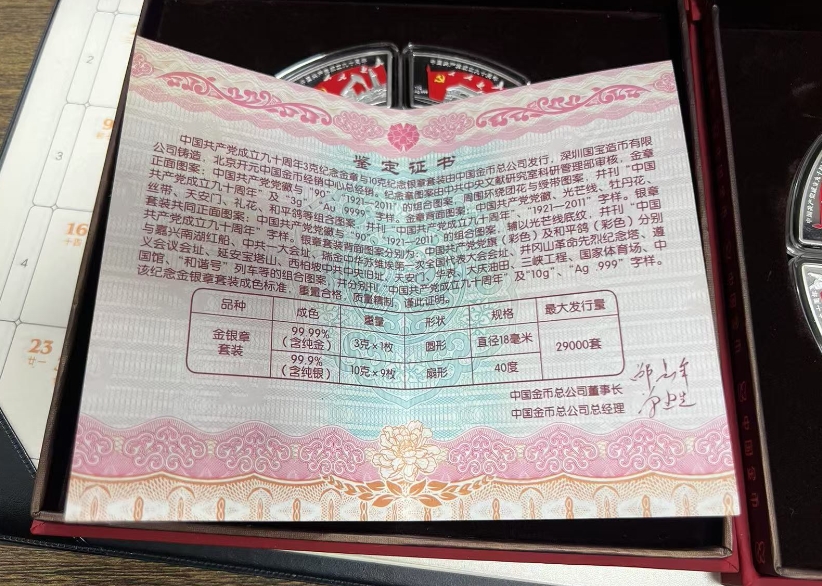 鉴定证书
中国共产党成立九十周年3克纪念金章与10克纪念银章套装由中国金币总公司发行，深圳国宝造币有限
公司铸造，北京开元中国金币经销中心总经销。纪念章图案由中共中央文献研究室科研管理部审核，金章
正面图案：中国共产党党徽与"90"、"1921-2011"的组合图案，周围环绕团花与绶带图案，并刊"中国
共产党成立九十周年"及"3g"、"Au 9999"字样。金章背面图案：中国共产党党徽、光芒线、牡丹花、
丝带、天安门、礼花、和平鸽等组合图案，并刊"中国共产党成立九十周年"、"1921-2011"字样。银章
套装共同正面图案：中国共产党党徽与"90"、"1921-2011"的组合图案，辅以光芒线底纹，并刊"中国
共产党成立九十周年"字样。银章套装背面图案分别为：中国共产党党旗（彩色）及和平鸽（彩色）分别
与嘉兴南湖红船、中共一大会址、瑞金中华苏维埃第一次全国代表大会会址、井冈山革命先烈纪念塔、遵
义会议会址、延安宝塔山、西柏坡中共中央旧址、天安门、华表、大庆油田、三峡工程、国家体育场、中
国馆、"和谐号"列车等的组合图案，并分别刊"中国共产党成立九十周年"及"10g"、"Ag .999"字样。
该纪念金银章套装成色标准，重量合格，质量精制，谨此证明。
品种 成色 重量 形状 规格 最大发行量
金银章套装 99.99%（含纯金） 3克×1枚 圆形 直径18毫米 29000套
99.9%（含纯银） 10克×9枚 扇形 40度
中国金币总公司董事长
中国金币总公司总经理
中国共产党成立九十周年
中国共产党成立九十周年
3
4
9
16
23